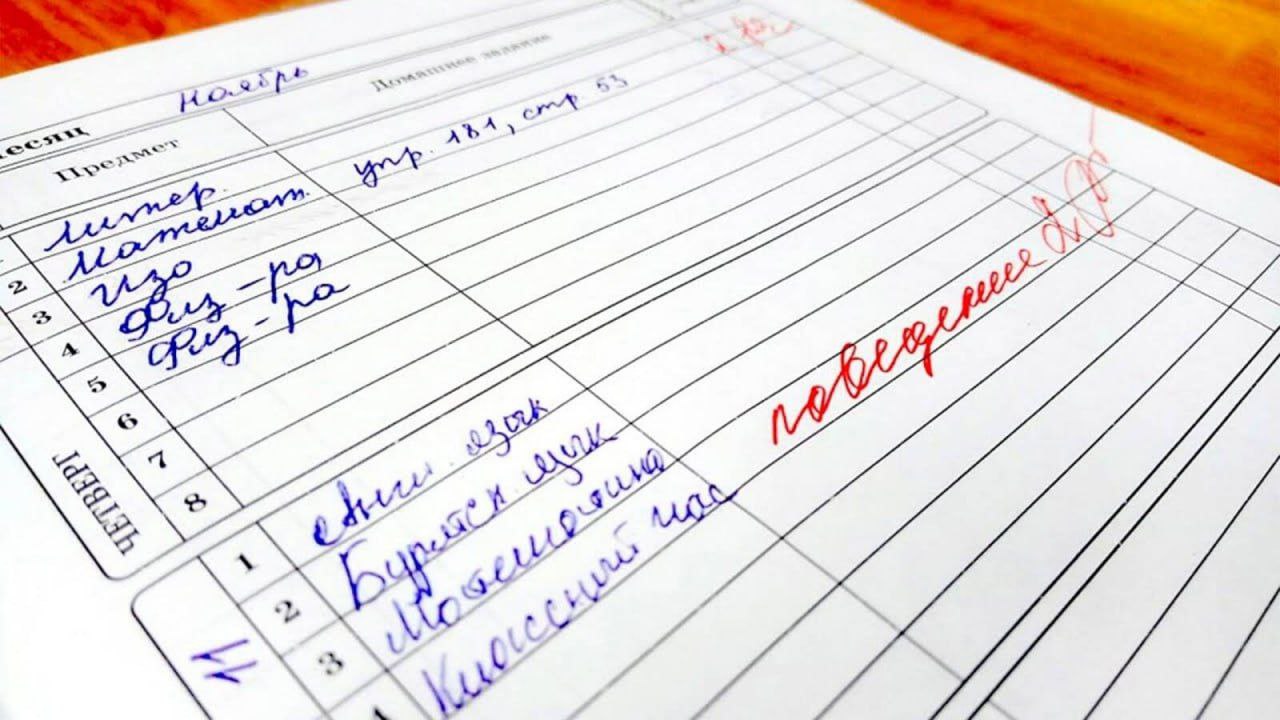 Месяц ноябрь
Предмет Домашнее задание
Литер.
2 Математ. упр. 181, стр 53
3 Изо
4 Физ-ра
5 Физ-ра
6
7
8
ЧЕТВЕРГ
1 Англ. язык
2 Бурятск. язык
3 Математика
Классный час
11
поведение